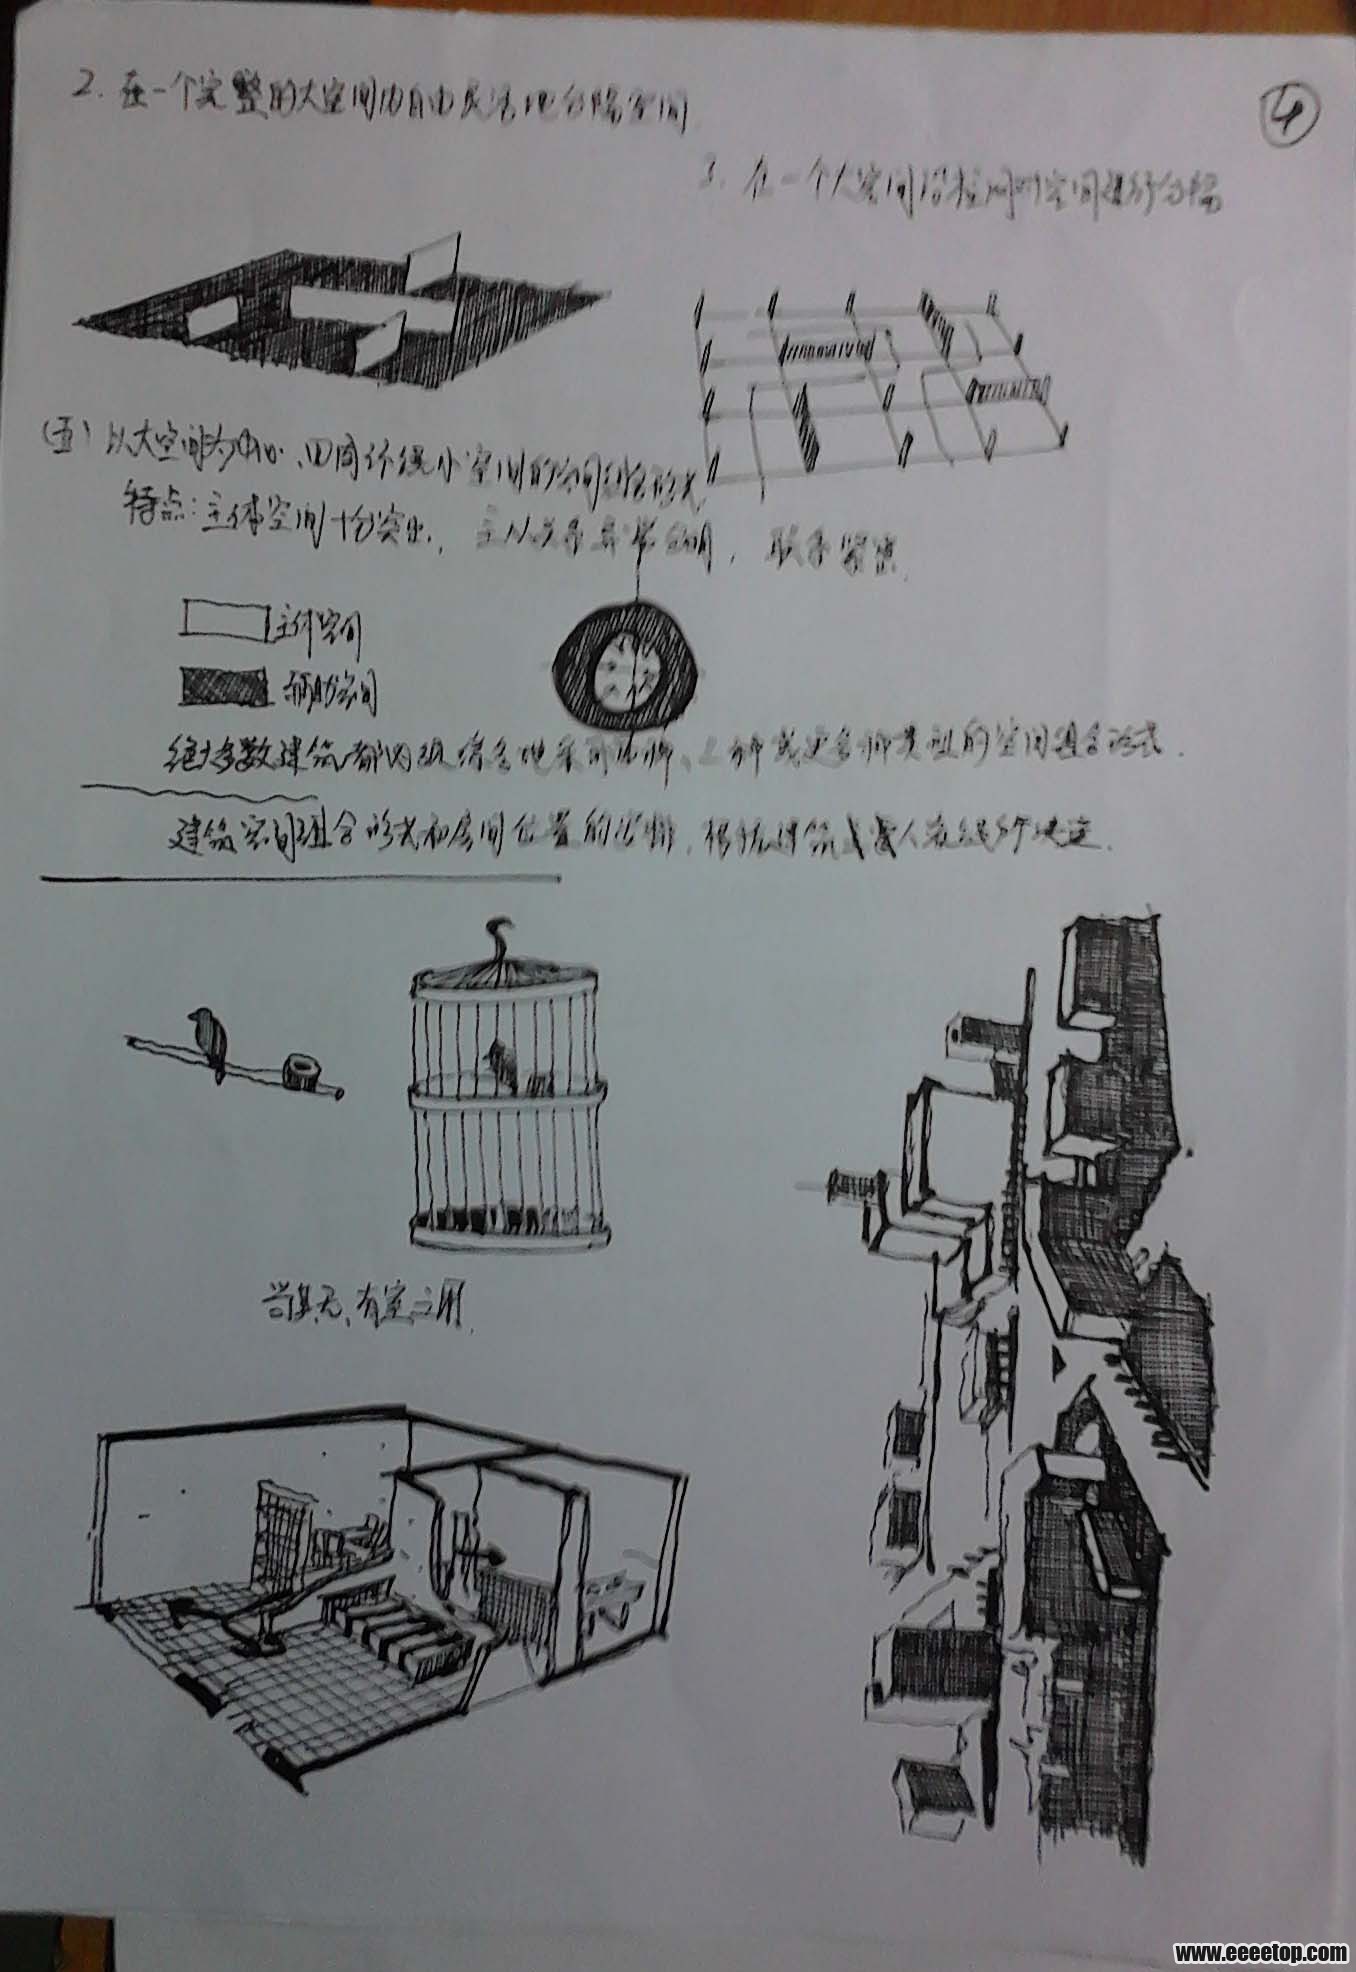 2. 在一个完整的大空间内自由灵活地分隔空间
4
3. 在一个大空间沿柱网对空间进行分隔
(五) 以大空间为中心、四周环绕小空间的空间组合形式
特点：主体空间十分突出，主从关系异常分明，联系紧密.
主体空间
辅助空间
绝大多数建筑都 综合地采用 种、二种或更多种类型的空间组合形式.
建筑空间组合形式和房间位置的安排，根据建筑 人流线 决定.
当其无、有室之用
www.eeeetop.com